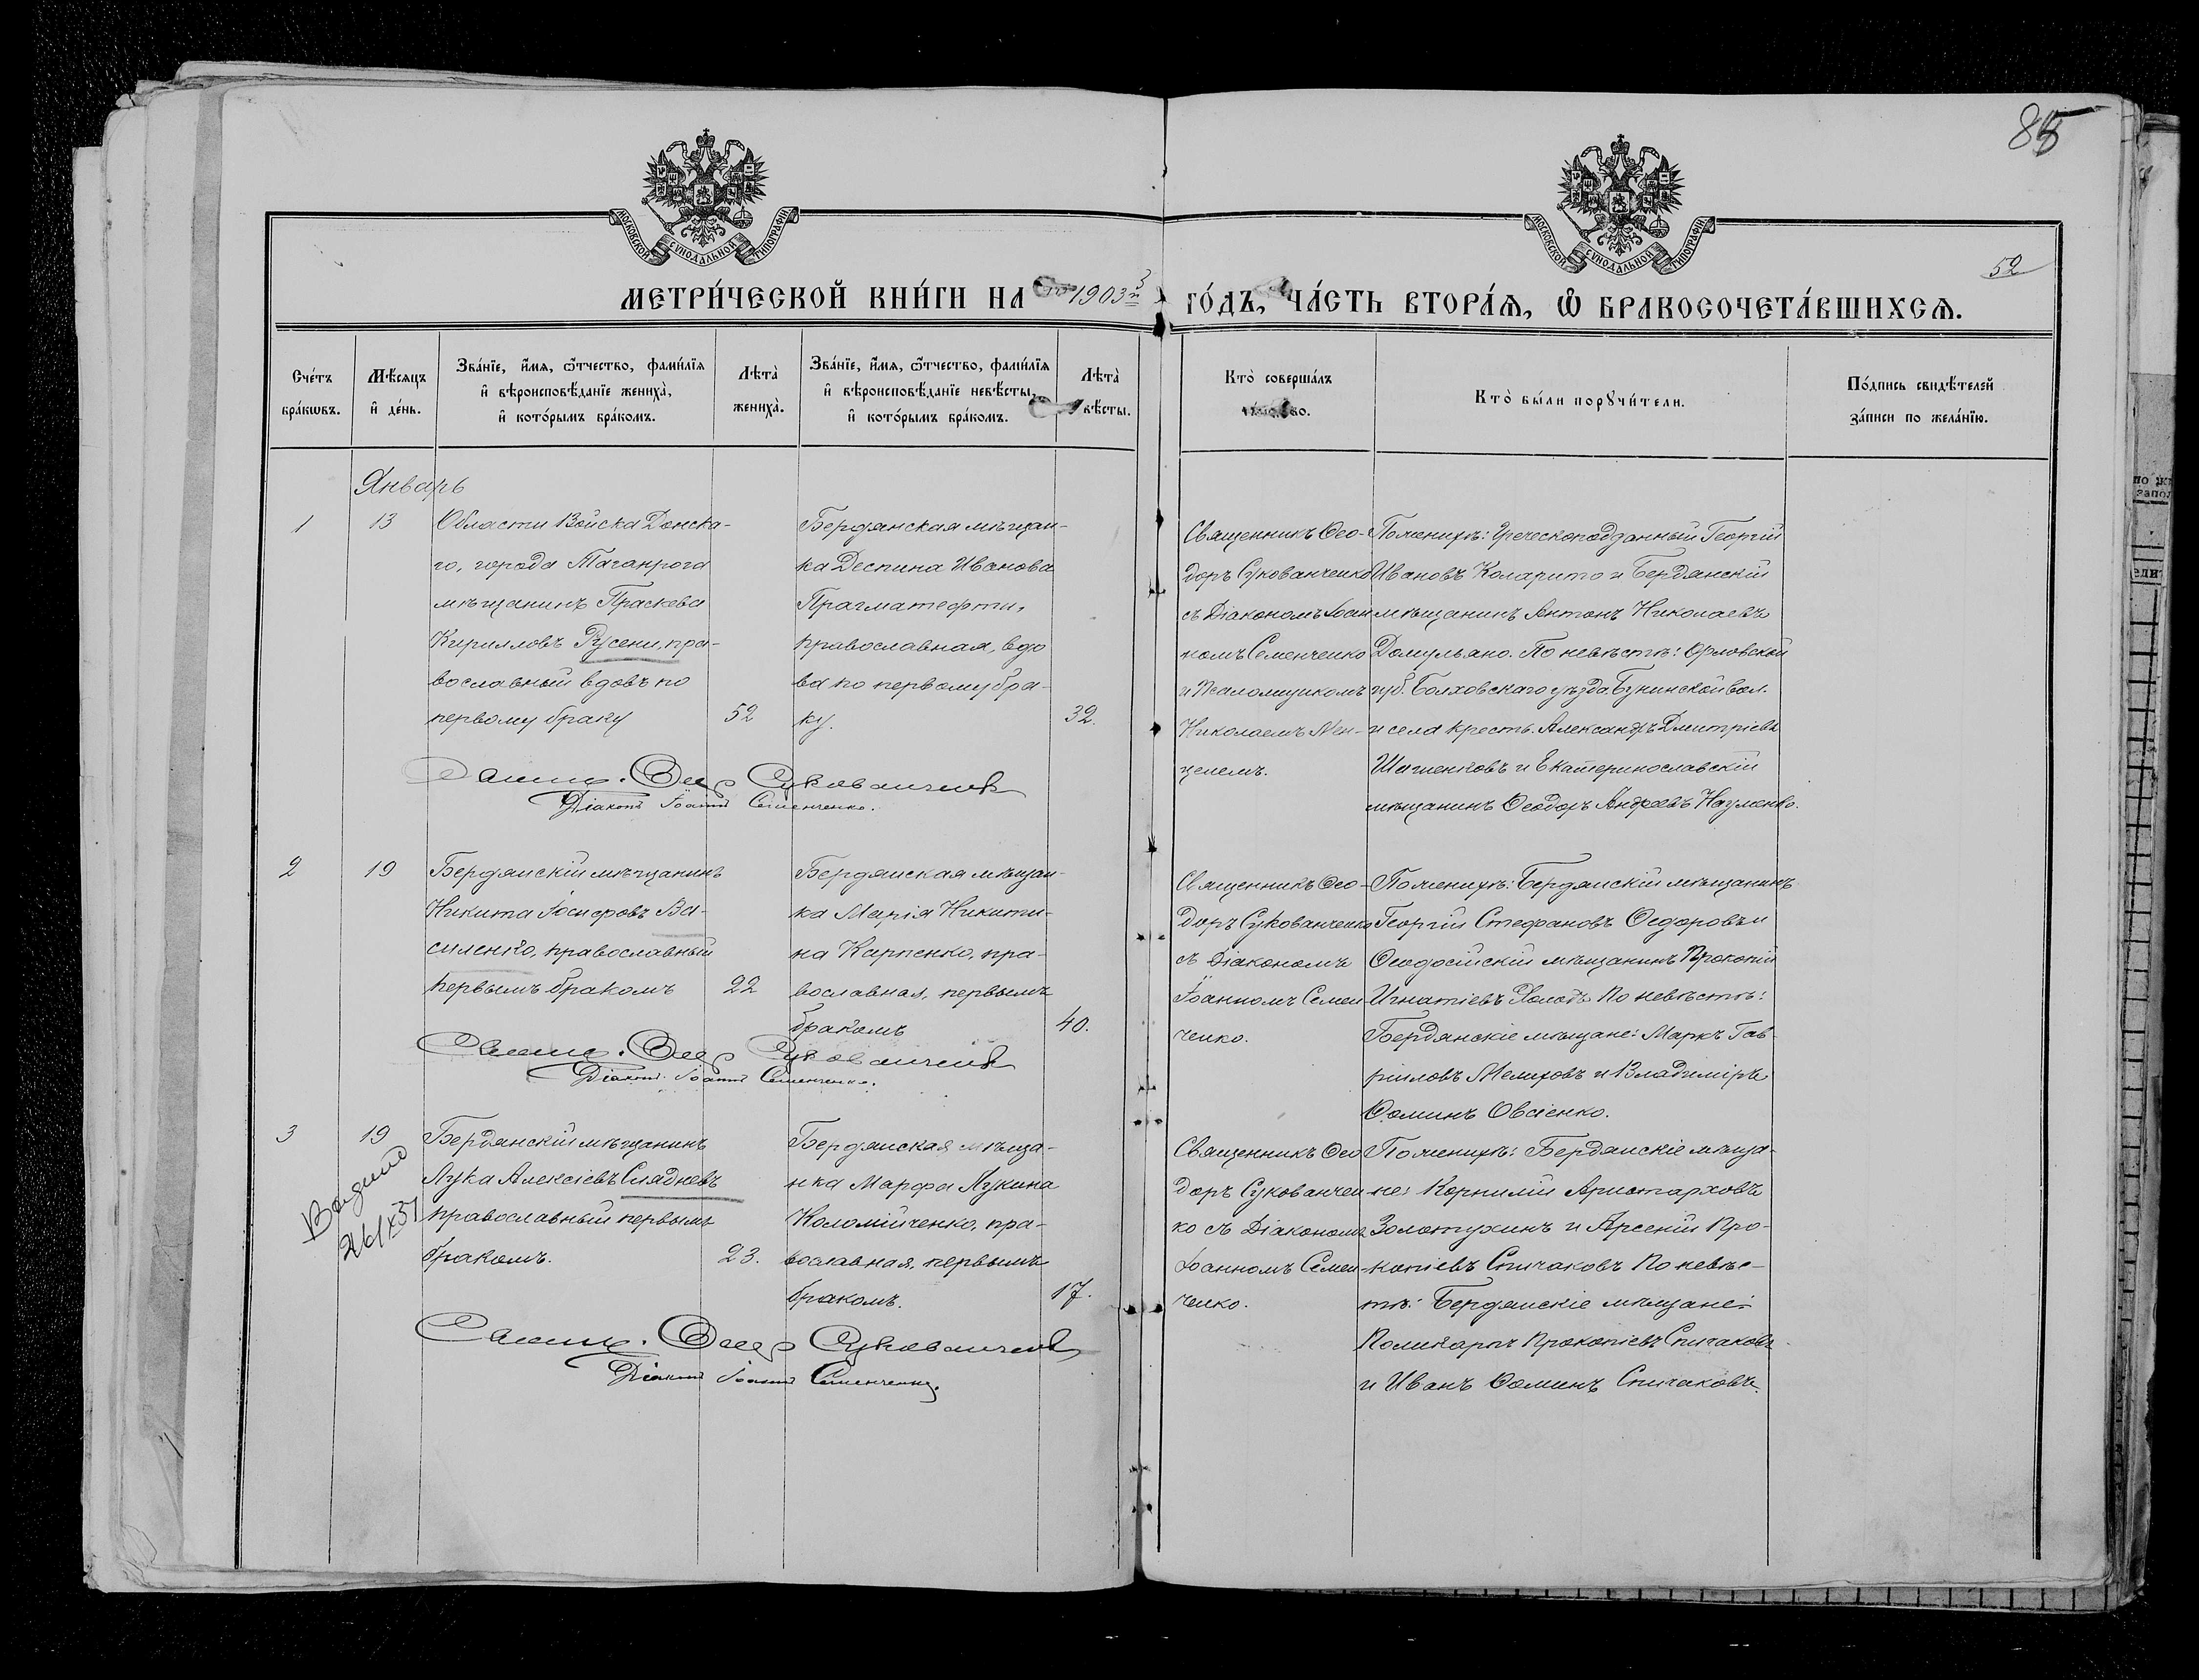 85
МОСКОВСКОЙ СѴНОДАЛЬНОЙ ТИПОГРАФІИ
МОСКОВСКОЙ СѴНОДАЛЬНОЙ ТИПОГРАФІИ
52
МЕТРИ́ЧЕСКОЙ КНИ́ГИ НА 1903й ГО́ДЪ, ЧА́СТЬ ВТОРА́Ѧ, Ѿ БРАКОСОЧЕТА́ВШИХСѦ.
Сче́тъ бра́кѡвъ.
Мѣ́сяцъ и҆ де́нь.
Зва́нїе, и҆́мя, ѻ҆́тчество, фами́лїя и҆ вѣроисповѣ́данїе жениха̀, и҆ кото́рымъ бра́комъ.
Лѣта̀ жениха̀.
Зва́нїе, и҆́мя, ѻ҆́тчество, фами́лїя и҆ вѣроисповѣ́данїе невѣ́сты, и҆ кото́рымъ бра́комъ.
Лѣта̀ вѣ́сты.
Кто̀ соверша́лъ
Кто̀ бы́ли порꙋчи́тели.
По́дпись свидѣ́телей за́писи по жела́нїю.
Январь
1
13
Области Войска Донска-
го, города Таганрога
мѣщанинъ Праскева
Кирилловъ Русени, пра-
вославный вдовъ по
первому браку
52
Бердянская мѣщан-
ка Деспина Иванова
Прагматефти,
православная, вдо
ва по первому бра-
ку.
32.
Священникъ Ѳео-
доръ Сукованченко
съ Діакономъ Іоан
номъ Семенченко
и Псаломщикомъ
Николаемъ Мен-
целемъ.
По женихѣ: Греческоподданный Георгій
Ивановъ Коларито и Бердянскій
мѣщанинъ Антонъ Николаевъ
Домульяно. По невѣстѣ: Орловской
губ. Болховскаго уѣзда Бунинской вол.
и села крестъ. Александръ Дмитріевъ
Шашенковъ и Екатеринославскій
мѣщанинъ Ѳеодоръ Андреевъ Науменко.
Свящ. Ѳеод Сукованченко
Діаконъ Іоаннъ Семенченко.
2
19
Бердянскій мѣщанинъ
Никита Іосифовъ Ва-
силенко, православный
первымъ бракомъ
22
Бердянская мѣщан-
ка Марія Никити-
на Карпенко, пра-
вославная, первымъ
бракомъ
40.
Священникъ Ѳео-
доръ Сукованченко
съ Діакономъ
Іоанномъ Семен
ченко.
По женихѣ: Бердянскій мѣщанинъ
Георгій Стефановъ Ѳедоровъ и
Ѳеодосійскій мѣщанинъ Прокопій
Игнатіевъ Холодъ По невѣстѣ:
Бердянскіе мѣщане: Маркъ Гав-
рииловъ Мелиховъ и Владиміръ
Ѳоминъ Овсіенко.
Свящ. Ѳеод Сукованченко
Діаконъ Іоаннъ Семенченко.
3
19
Бердянскій мѣщанинъ
Лука Алексіевъ Сладневъ
православный первымъ
бракомъ.
23.
Бердянская мѣща-
нка Марфа Лукина
Коломійченко, пра-
вославная, первымъ
бракомъ.
17.
Священникъ Ѳео
доръ Сукованчен
ко съ Діакономъ
Іоанномъ Семен-
ченко.
По женихѣ: Бердянскіе мѣща-
не: Корнилій Аристарховъ
Золотухинъ и Арсеній Про-
копіевъ Спичаковъ По невѣс-
тѣ: Бердянскіе мѣщане:
Поликарпъ Прокопіевъ Спичаковъ
и Иванъ Ѳоминъ Спичаковъ.
Свящ. Ѳеод Сукованченко
Діаконъ Іоаннъ Семенченко.